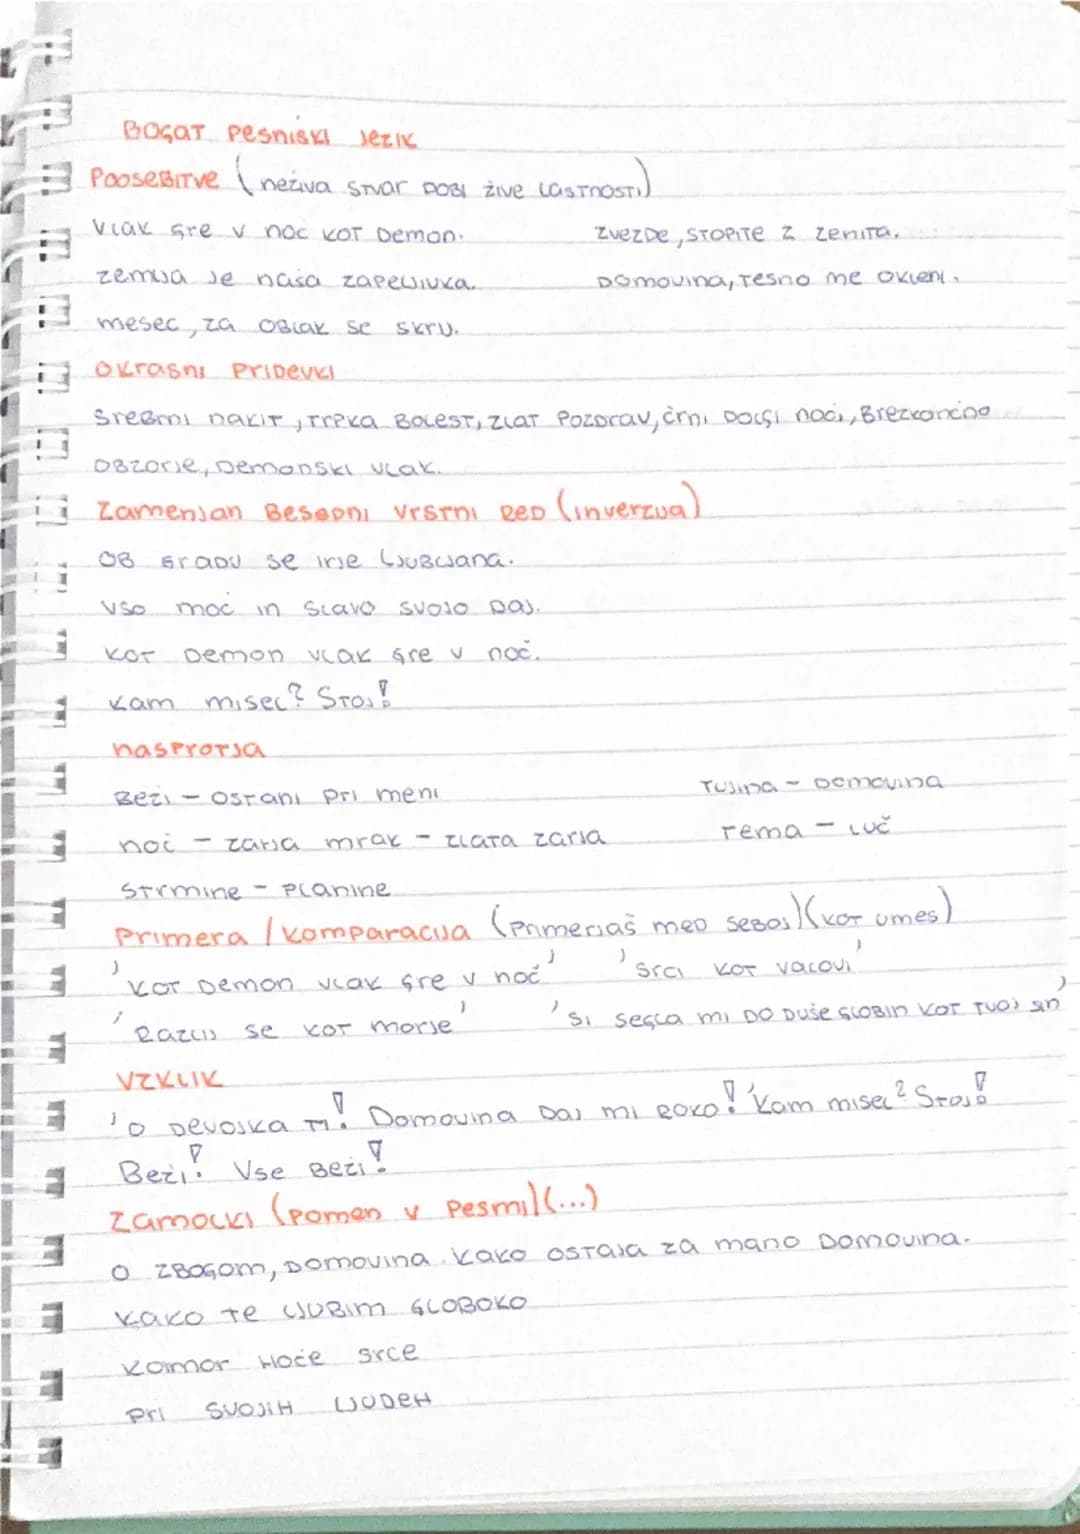 BOGAT PESNIŠKI JEZIK
POOSEBITVE (neživa STVAR DOBI žive LASTNOSTI)
Vlak gre v noč KOT Demon. ZVEZDE, STOPITE Z ZENITA.
zemlja je naša zapeljivka. DOMOVINA, TESNO me OKLENI.
mesec, za OBLAK se skrij.
OKRASNI PRIDEVKI
Srebrni nakit, TRPKA BOLEST, ZLAT POZDRAV, črni DOLGI noči, Brezkončno
OBZORJE, Demonski vlak.
Zamenjan BESEDNI VRSTNI RED (inverzija)
OB GRADU se irje LJUBLJANA.
VSO moč in SLAVO SVOJO DAJ.
KOT Demon vlak gre v noč.
Kam misel? STOJ!
NASPROTJA
Beži - OSTANI pri meni TUJINA - DOMOVINA
noč - zarja mrak - ZLATA zarja Tema - LUČ
STRMINE - PLANINE
Primera / komparacija (primerjaš med SEBOJ) (KOT umes)
'KOT Demon vlak gre v noč' 'Srci KOT valovi'
'RAZLIJ se KOT morje' 'Si segla mi DO DUŠE GLOBIN KOT TVOJ sin'
VZKLIK
'O DEVOJKA TI! Domovina DAJ mi ROKO! 'Kam misel? STOJ!
Beži! Vse Beži!
Zamolki (pomen v pesmi) (...)
O ZBOGOM, DOMOVINA. KAKO OSTAJA za mano DOMOVINA.
KAKO te LJUBIM GLOBOKO
Kamor HOČE srce
Pri SVOJIH LJUDEH